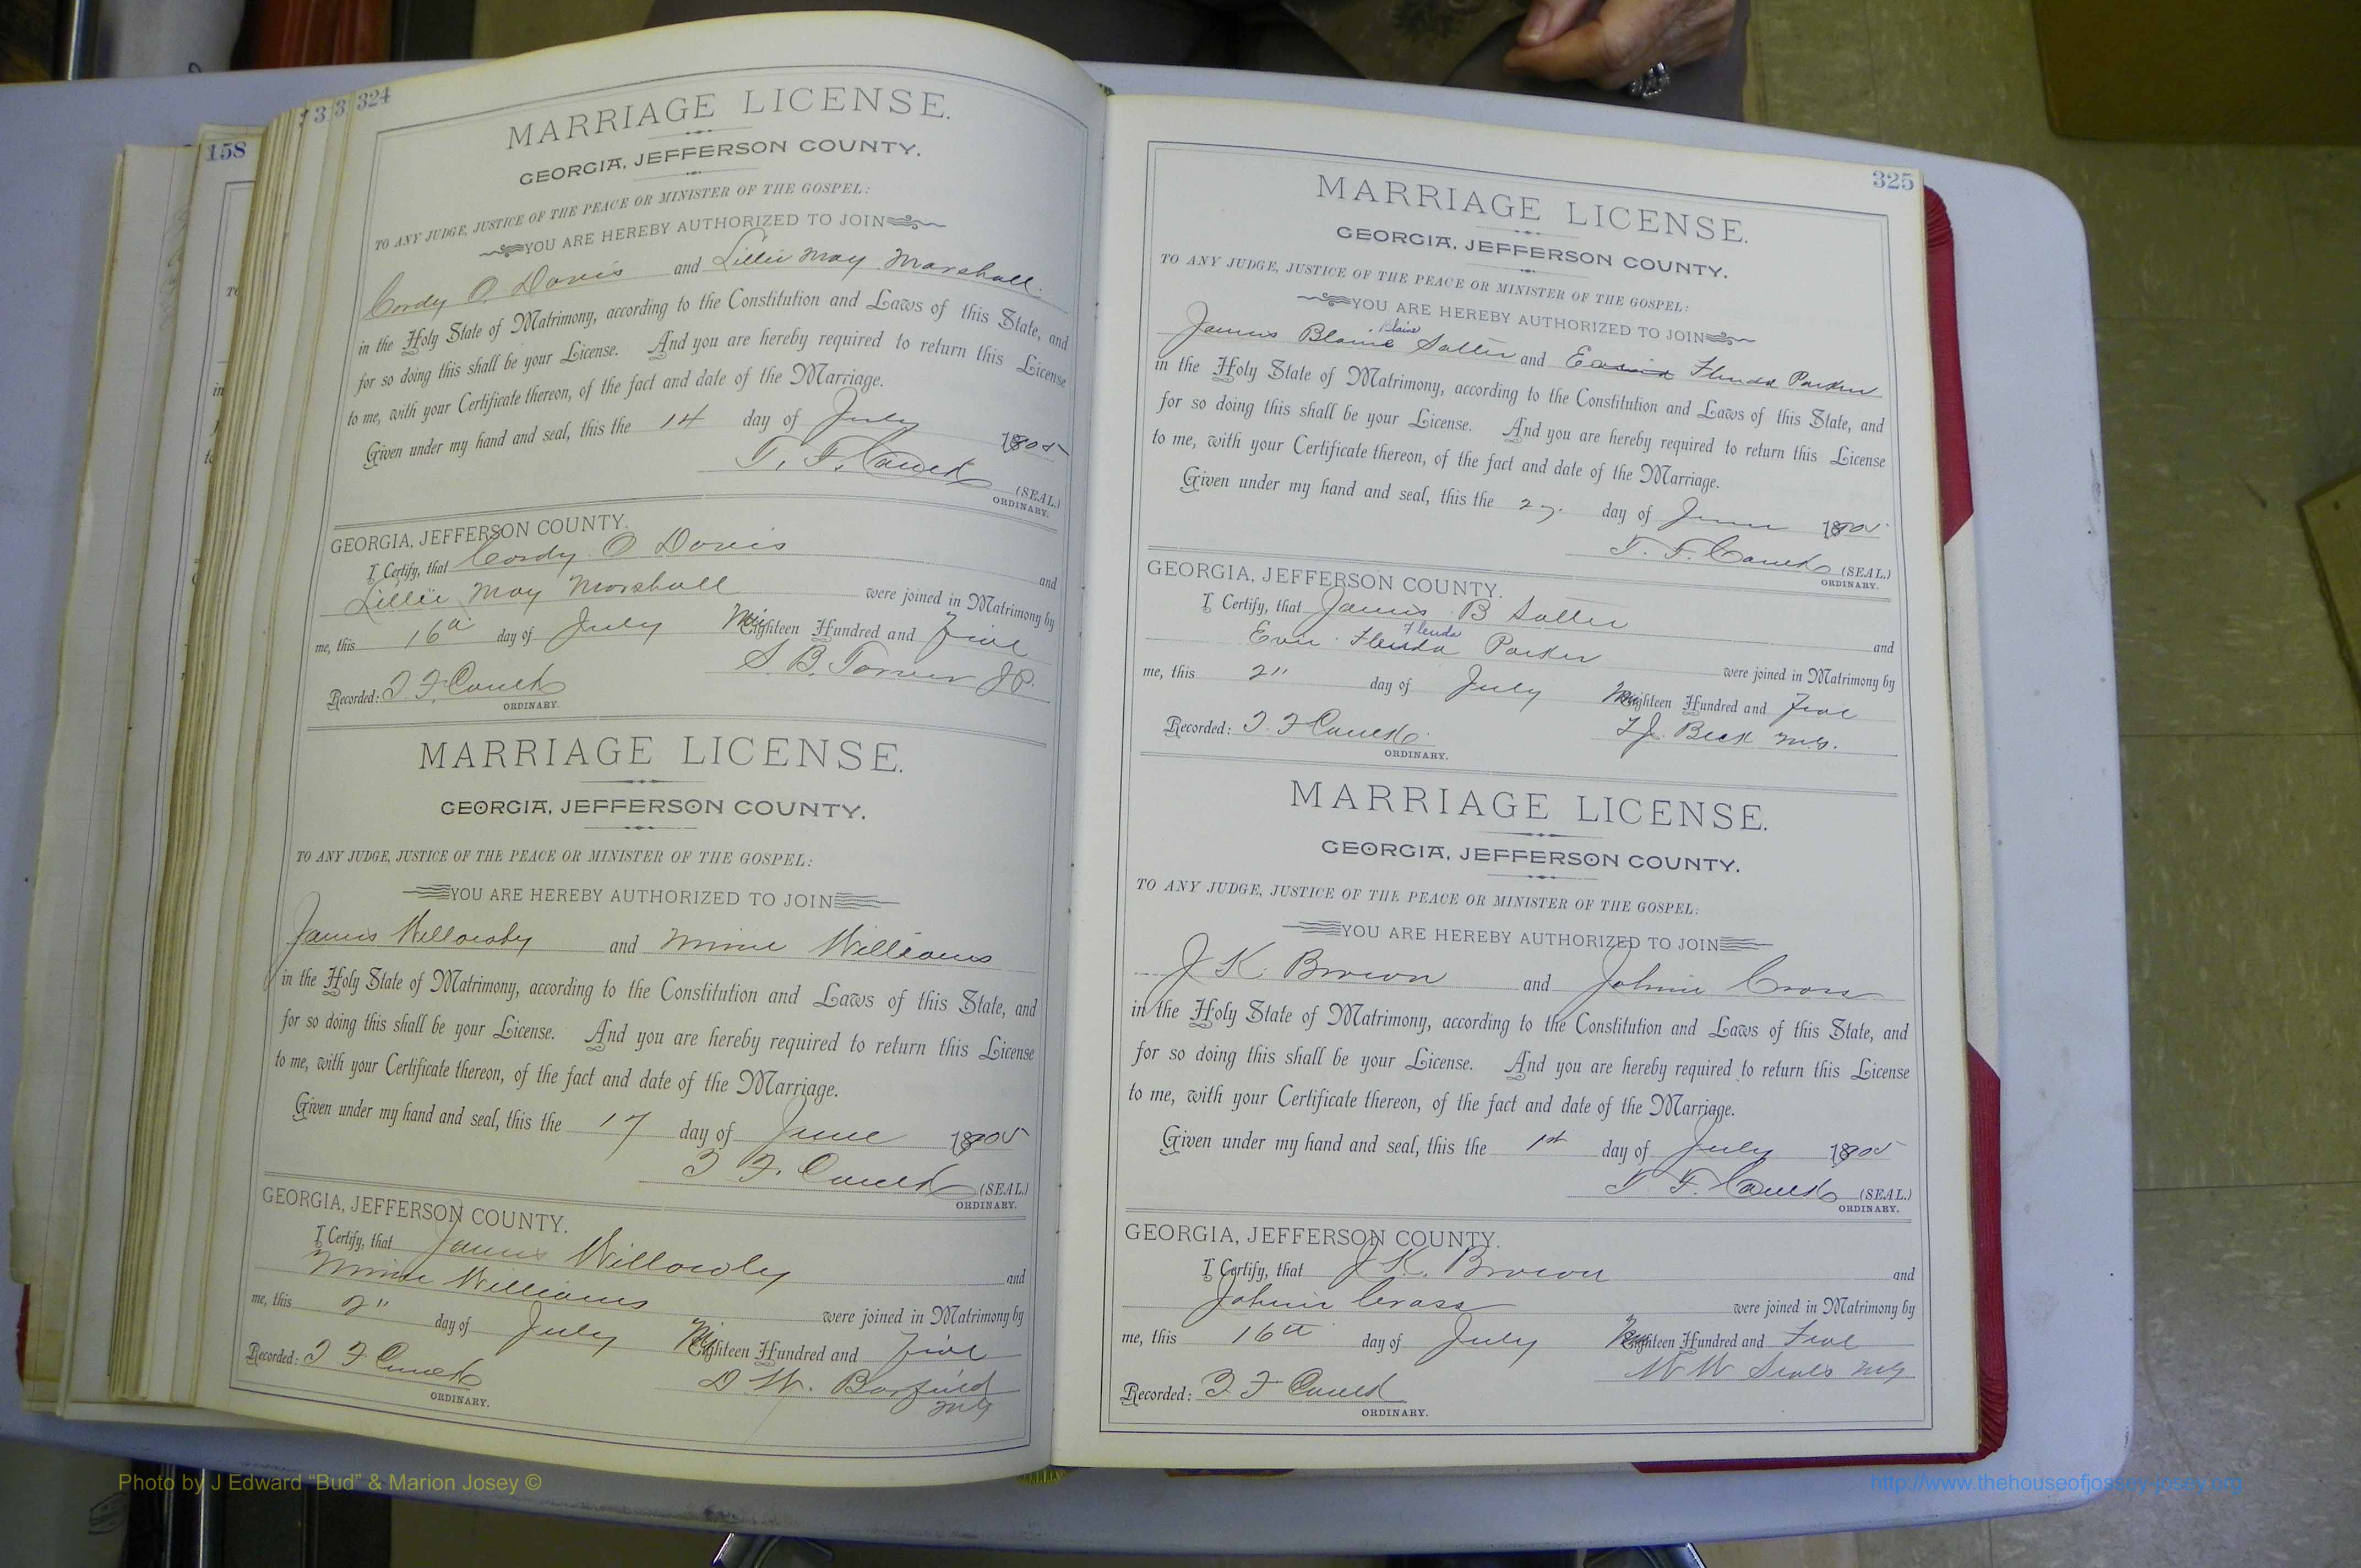 158
3 3 324
MARRIAGE LICENSE.
GEORGIA, JEFFERSON COUNTY.
TO ANY JUDGE, JUSTICE OF THE PEACE OR MINISTER OF THE GOSPEL:
YOU ARE HEREBY AUTHORIZED TO JOIN
Cordy O Davis and Lillie May Marshall
in the Holy State of Matrimony, according to the Constitution and Laws of this State, and
for so doing this shall be your License. And you are hereby required to return this License
to me, with your Certificate thereon, of the fact and date of the Marriage.
Given under my hand and seal, this the 14 day of July 1905
T. F. (SEAL.)
ORDINARY.
GEORGIA, JEFFERSON COUNTY.
I Certify, that Cordy O Davis and
Lillie May Marshall were joined in Matrimony by
me, this 16th day of July Eighteen Hundred and Five
S. B. J.P.
Recorded: T F
ORDINARY.
MARRIAGE LICENSE.
GEORGIA, JEFFERSON COUNTY.
TO ANY JUDGE, JUSTICE OF THE PEACE OR MINISTER OF THE GOSPEL:
YOU ARE HEREBY AUTHORIZED TO JOIN
James Willowby and Minie Williams
in the Holy State of Matrimony, according to the Constitution and Laws of this State, and
for so doing this shall be your License. And you are hereby required to return this License
to me, with your Certificate thereon, of the fact and date of the Marriage.
Given under my hand and seal, this the 17 day of June 1905
T F. (SEAL.)
ORDINARY.
GEORGIA, JEFFERSON COUNTY.
I Certify, that James Willowby and
Minie Williams were joined in Matrimony by
me, this 2" day of July Eighteen Hundred and Five
D. W. Barfield
MG
Recorded: T F
ORDINARY.
325
MARRIAGE LICENSE.
GEORGIA, JEFFERSON COUNTY.
TO ANY JUDGE, JUSTICE OF THE PEACE OR MINISTER OF THE GOSPEL:
YOU ARE HEREBY AUTHORIZED TO JOIN
Blaine
James Blaine Salter and Flenda Parker
in the Holy State of Matrimony, according to the Constitution and Laws of this State, and
for so doing this shall be your License. And you are hereby required to return this License
to me, with your Certificate thereon, of the fact and date of the Marriage.
Given under my hand and seal, this the 27. day of June 1905
T. F. (SEAL.)
ORDINARY.
GEORGIA, JEFFERSON COUNTY.
I Certify, that James B Salter and
Flenda
Evie Flenda Parker were joined in Matrimony by
me, this 2" day of July Eighteen Hundred and Five
Beck M.G.
Recorded: T. F
ORDINARY.
MARRIAGE LICENSE.
GEORGIA, JEFFERSON COUNTY.
TO ANY JUDGE, JUSTICE OF THE PEACE OR MINISTER OF THE GOSPEL:
YOU ARE HEREBY AUTHORIZED TO JOIN
J K. Brown and Johnie Cross
in the Holy State of Matrimony, according to the Constitution and Laws of this State, and
for so doing this shall be your License. And you are hereby required to return this License
to me, with your Certificate thereon, of the fact and date of the Marriage.
Given under my hand and seal, this the 1st day of July 1905
T. F. (SEAL.)
ORDINARY.
GEORGIA, JEFFERSON COUNTY.
I Certify, that J K. Brown and
Johnie Cross were joined in Matrimony by
me, this 16th day of July Eighteen Hundred and Five
W W Seals MG
Recorded: T F
ORDINARY.
Photo by J Edward “Bud” & Marion Josey ©
http://www.thehouseofjossey-josey.org